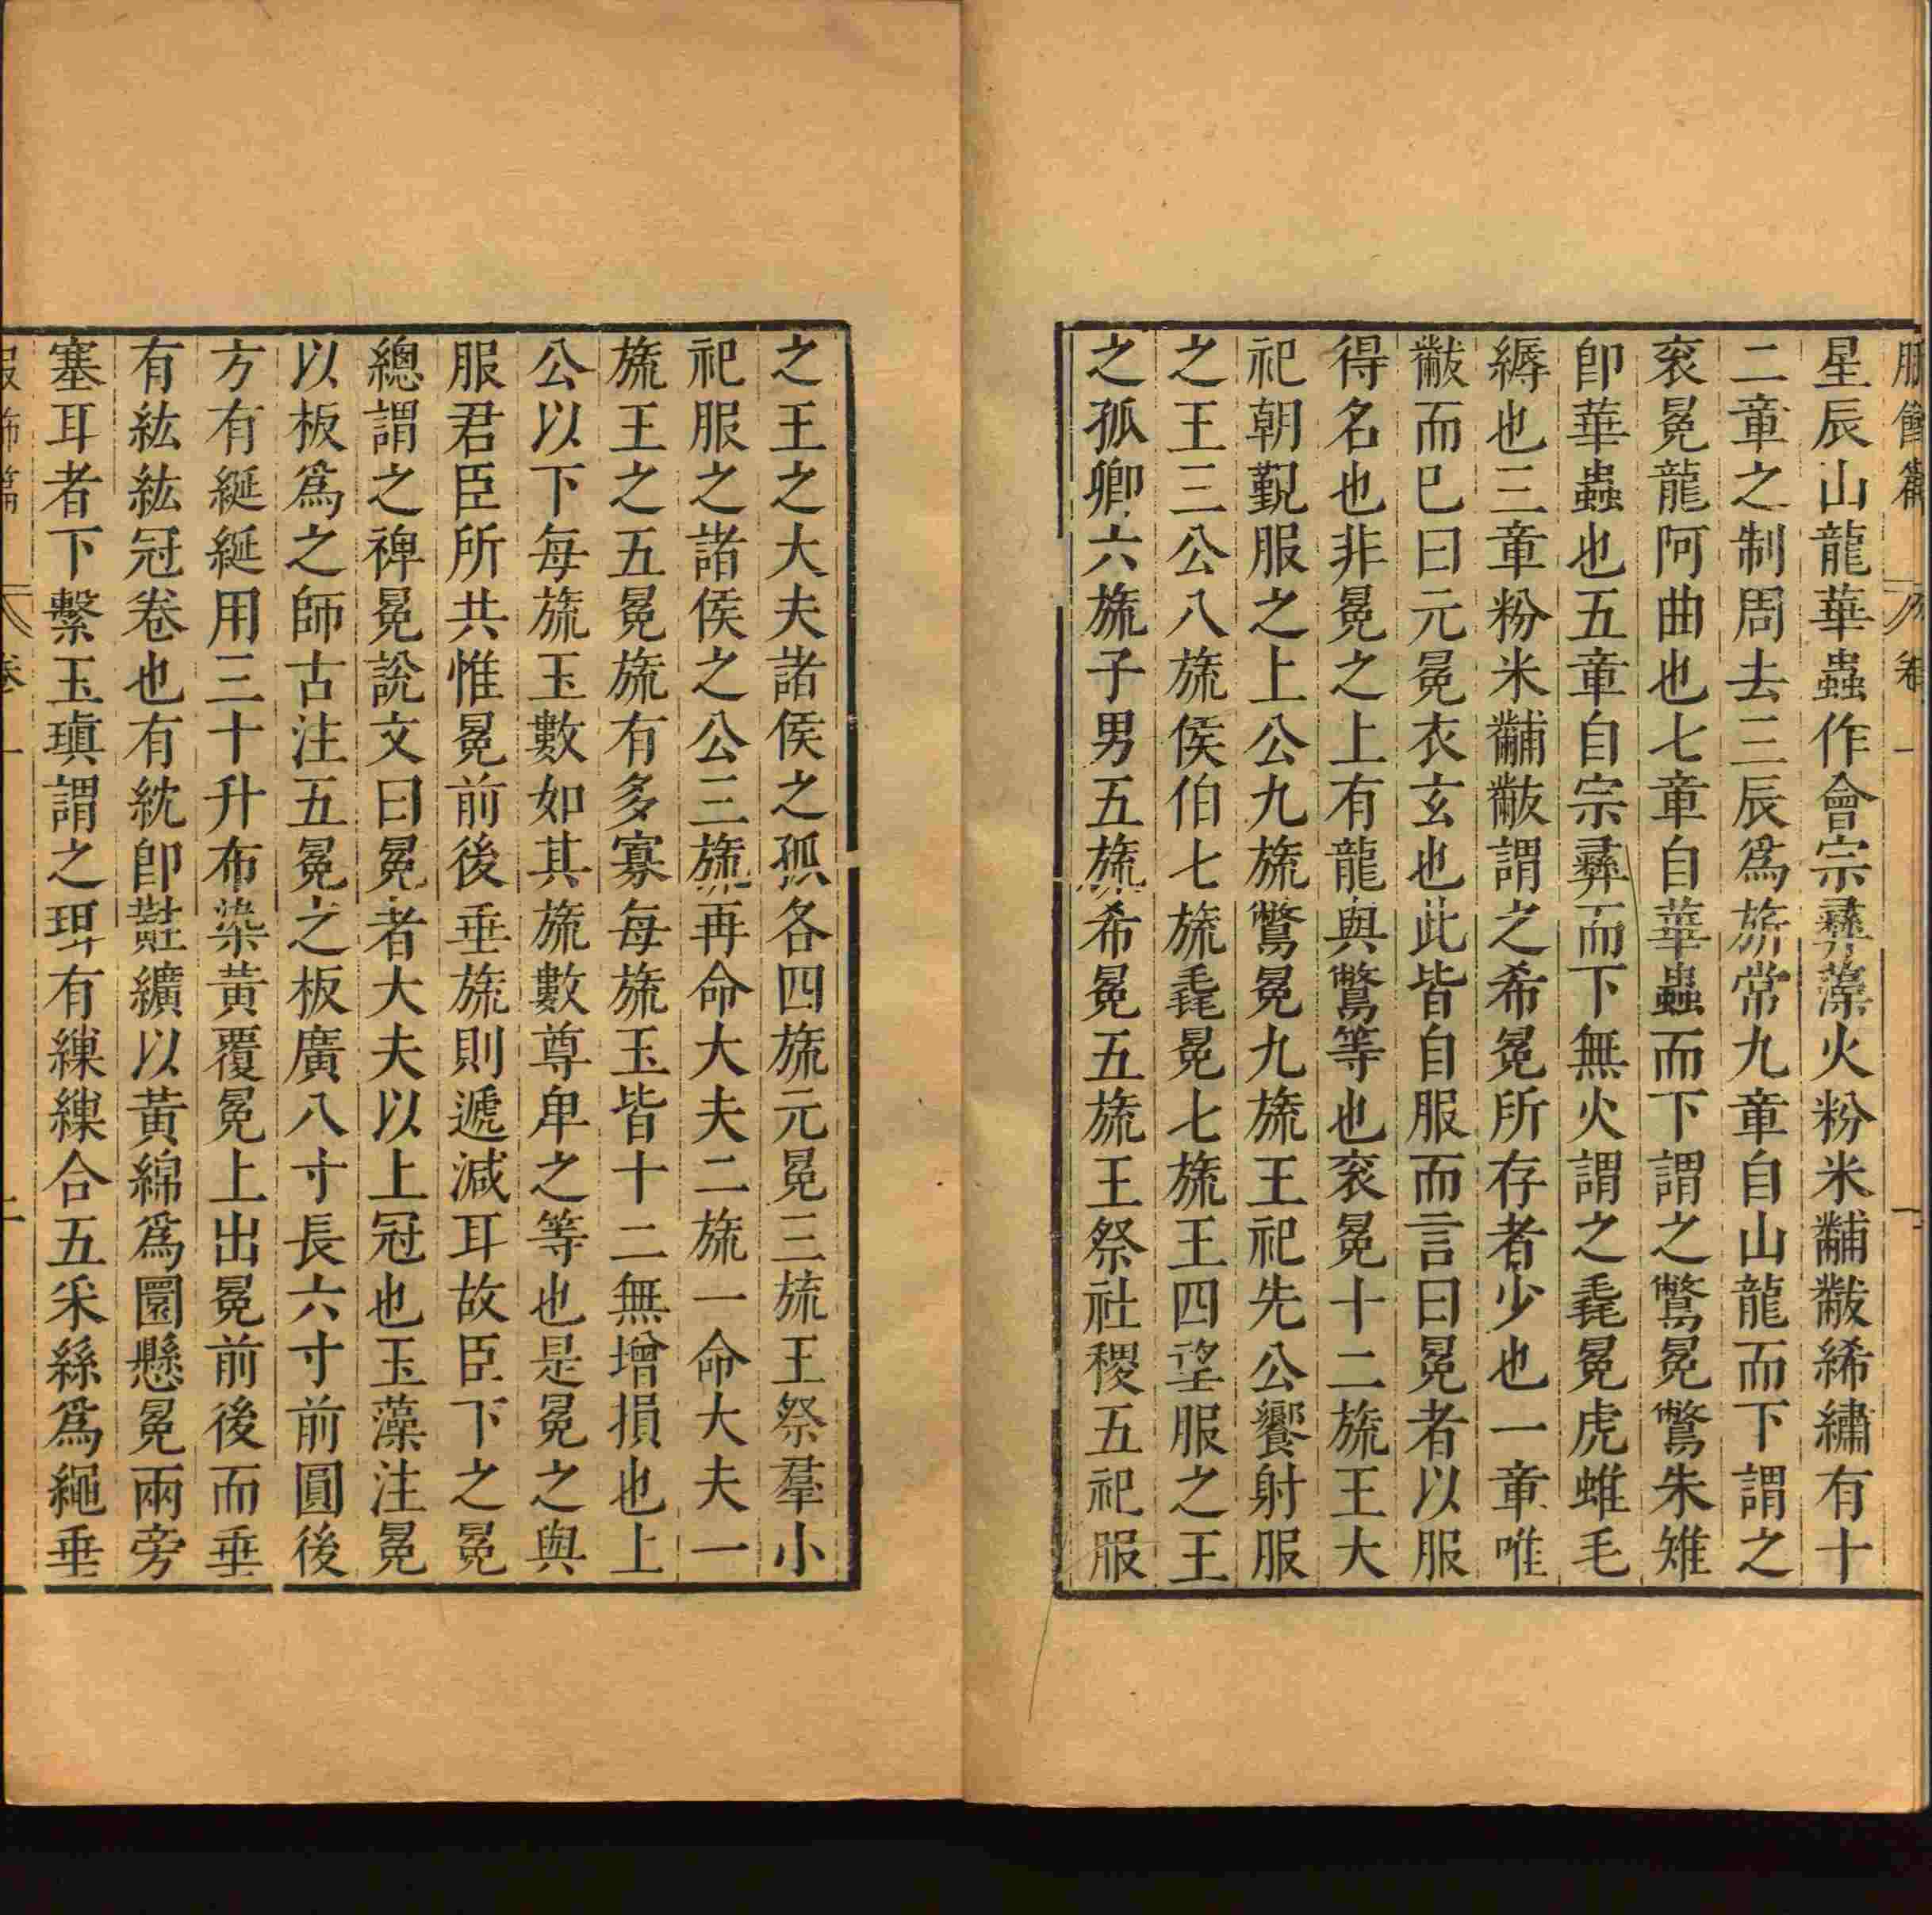 服飾篇 卷一 一
星辰山龍華蟲作會宗彝藻火粉米黼黻絺繡有十
二章之制周去三辰爲旂常九章自山龍而下謂之
衮冕龍阿曲也七章自華蟲而下謂之鷩冕鷩朱雉
卽華蟲也五章自宗彝而下無火謂之毳冕虎蜼毛
縟也三章粉米黼黻謂之希冕所存者少也一章唯
黻而巳曰元冕衣玄也此皆自服而言曰冕者以服
得名也非冕之上有龍與鷩等也衮冕十二旒王大
祀朝覲服之上公九旒鷩冕九旒王祀先公饗射服
之王三公八旒侯伯七旒毳冕七旒王四望服之王
之孤卿六旒子男五旒希冕五旒王祭社稷五祀服
之王之大夫諸侯之孤各四旒元冕三旒王祭羣小
祀服之諸侯之公三旒再命大夫二旒一命大夫一
旒王之五冕旒有多寡每旒玉皆十二無增損也上
公以下每旒玉數如其旒數尊卑之等也是冕之與
服君臣所共惟冕前後垂旒則遞減耳故臣下之冕
總謂之裨冕說文曰冕者大夫以上冠也玉藻注冕
以板爲之師古注五冕之板廣八寸長六寸前圓後
方有綖綖用三十升布染黃覆冕上出冕前後而垂
有紘紘冠卷也有紞卽黈纊以黃綿爲圜懸冕兩旁
塞耳者下繫玉瑱謂之珥有繅繅合五采絲爲繩垂
服飾篇 卷一